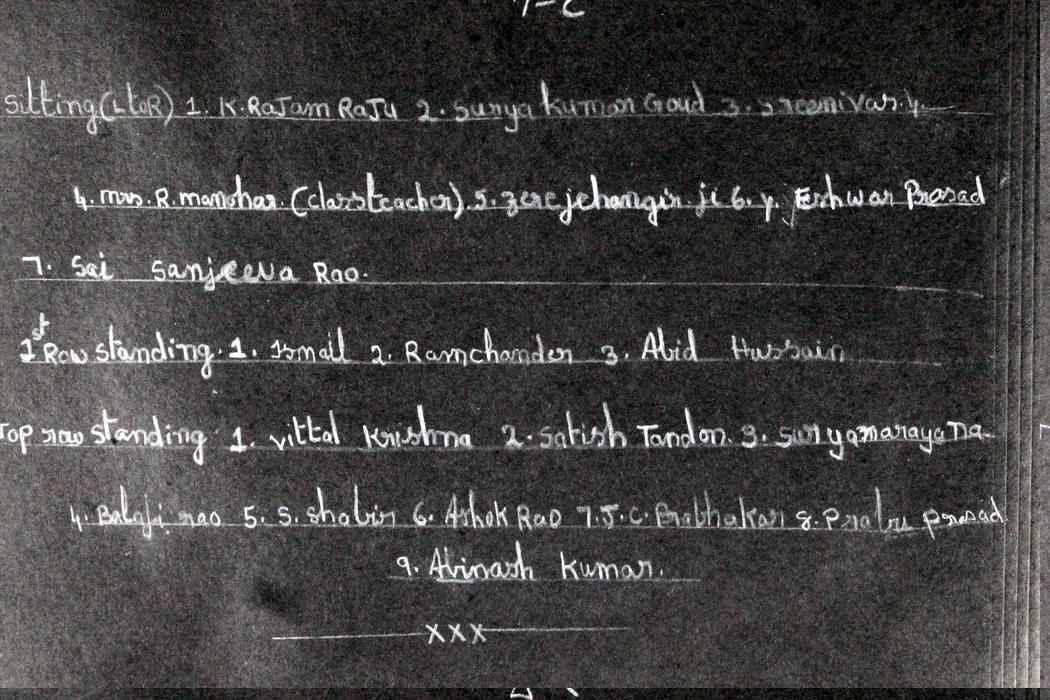 Sitting (L to R) 1. K. Rajam Raju 2. Surya kumar Goud 3. Sreenivas. 4.
4. mrs. R. manohar. (class teacher). 5. zere jehangir. ji 6. y. Eshwar Prasad
7. Sai Sanjeeva Rao.
1st Row standing. 1. Ismail 2. Ramchander 3. Abid Hussain
Top row standing 1. vittal Krishna 2. Satish Tandon. 3. Suryanarayana.
4. Balaji rao 5. S. Shabir 6. Ashok Rao 7. J. C. Prabhakar 8. Prabu prasad
9. Abinash Kumar.
XXX